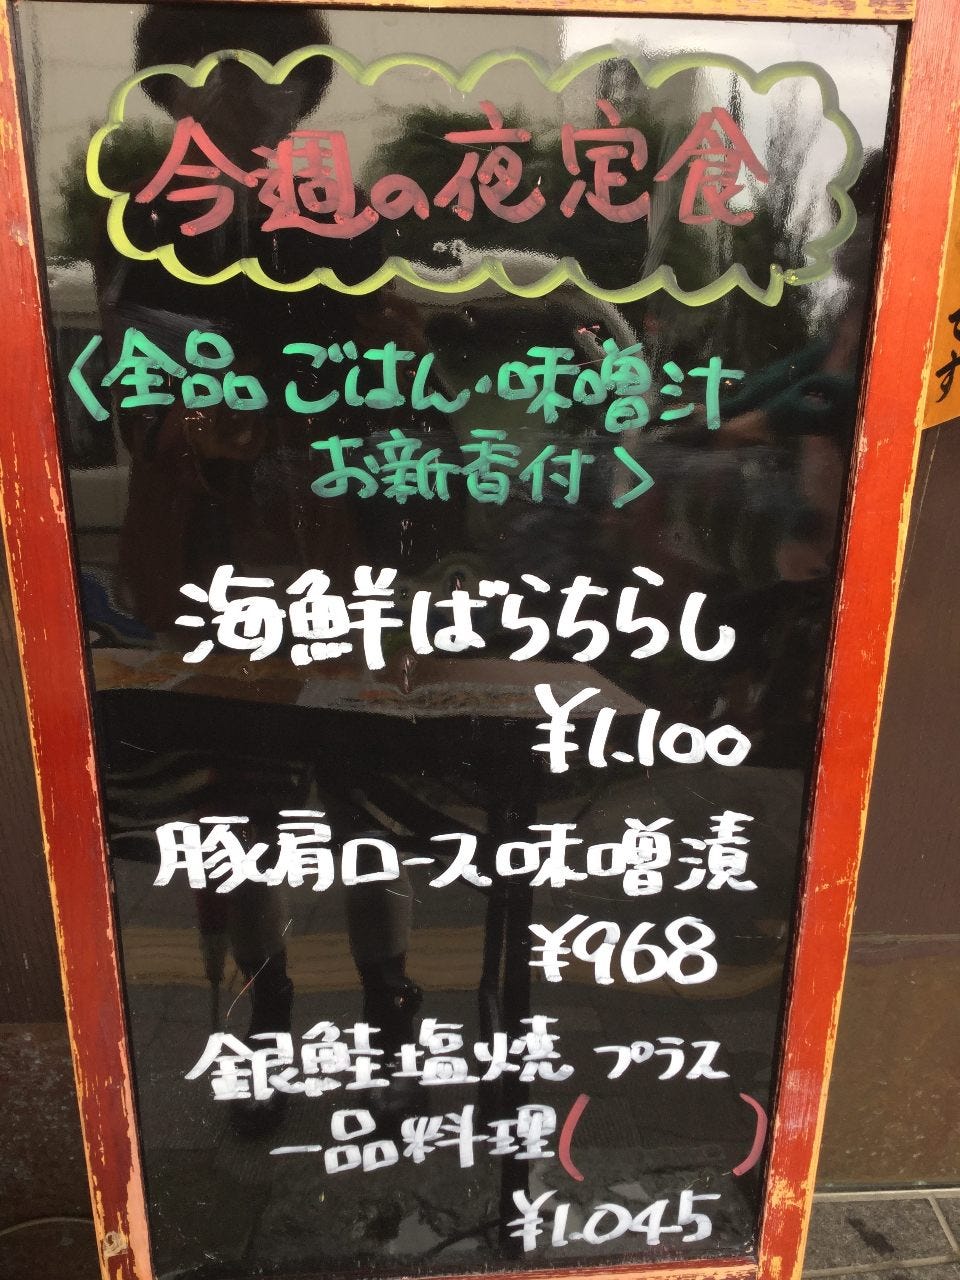 今週の夜定食
〈全品 ごはん・味噌汁
お新香付〉
海鮮ばらちらし
¥1.100
豚肩ロース味噌漬
¥968
銀鮭塩焼 プラス
一品料理( )
¥1.045
です